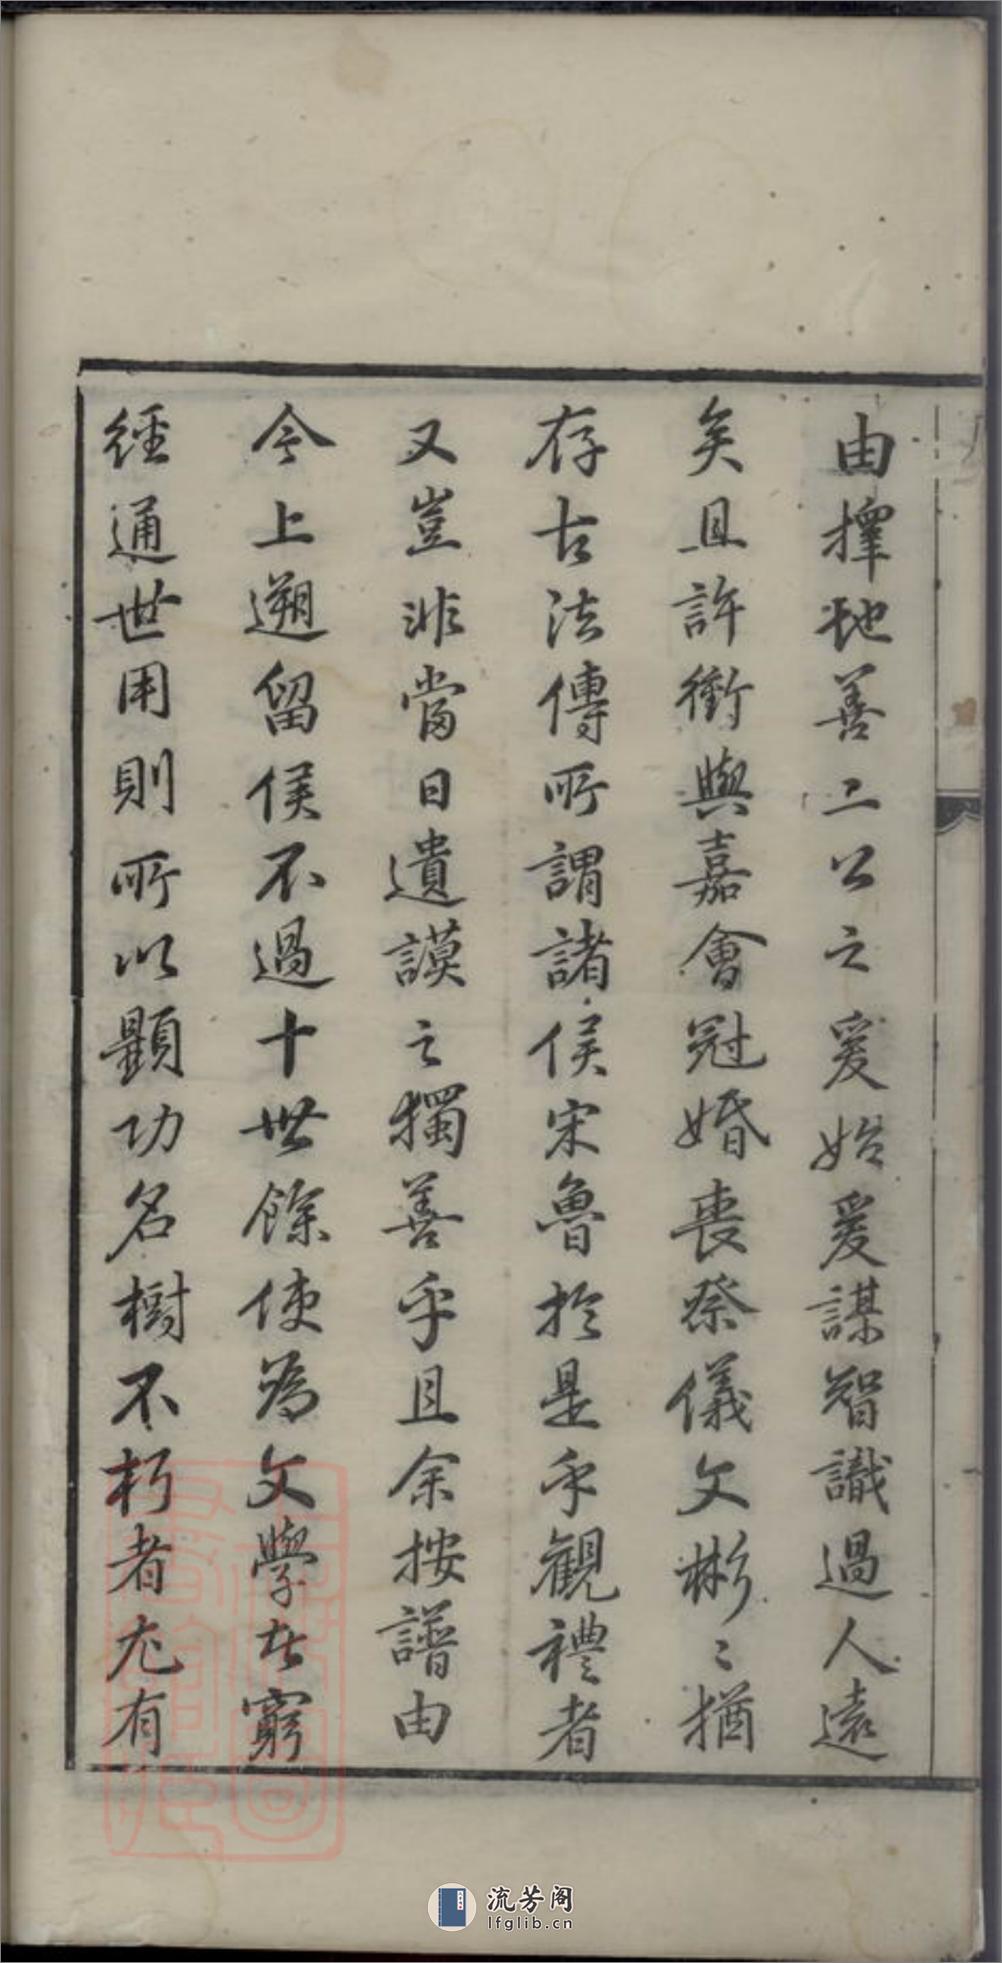 由擇地善二公之爰始爰謀智識過人遠
矣且許衝與嘉會冠婚喪祭儀文彬〻猶
存古法傳所謂諸侯宋魯於是乎觀禮者
又豈非當日遺謨之獨善乎且余按譜由
今上遡留侯不過十世餘使為文學者窮
經通世用則所以顯功名樹不朽者尤有
流芳阁
lfglib.cn